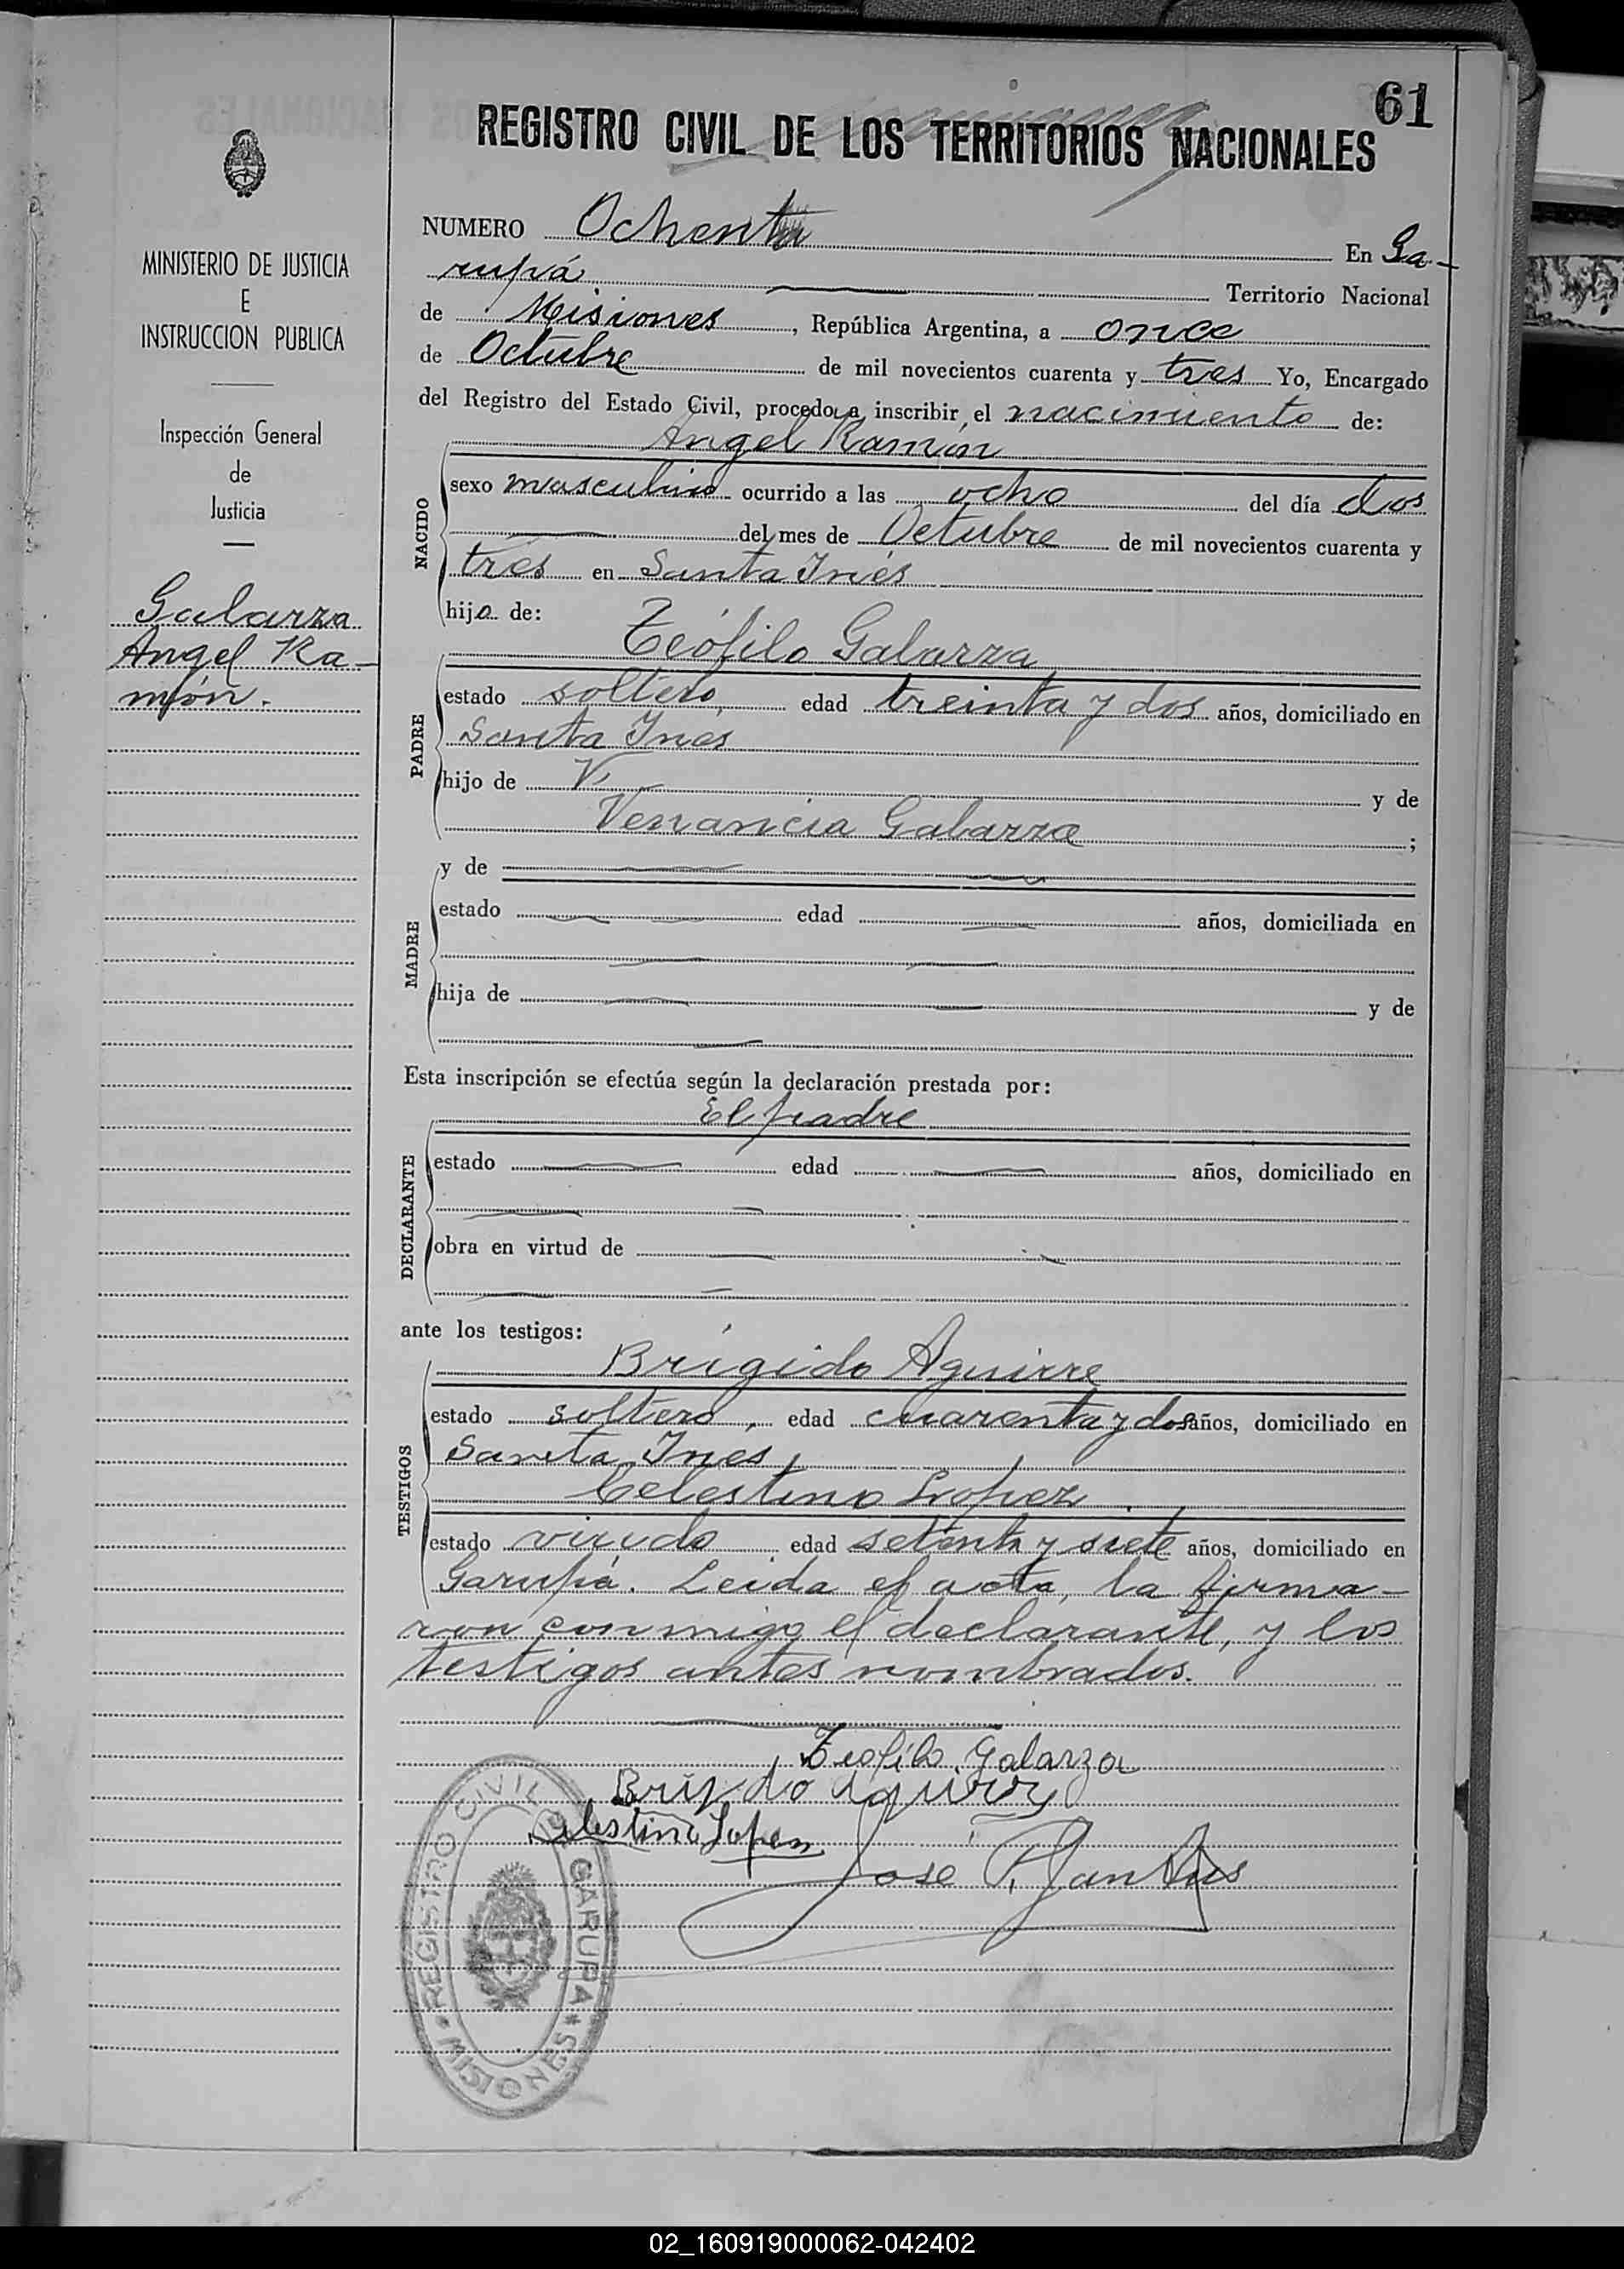 61
REGISTRO CIVIL DE LOS TERRITORIOS NACIONALES
MINISTERIO DE JUSTICIA
E
INSTRUCCION PUBLICA
Inspección General
de
Justicia
Galarza
Angel Ra-
món.
NUMERO Ochenta En Ga-
rupá Territorio Nacional
de Misiones, República Argentina, a once
de Octubre de mil novecientos cuarenta y tres Yo, Encargado
del Registro del Estado Civil, procedo a inscribir el nacimiento de:
Angel Ramón
NACIDO
sexo masculino ocurrido a las ocho del día dos
del mes de Octubre de mil novecientos cuarenta y
tres en Santa Inés
hijo de:
Teófilo Galarza
PADRE
estado soltero, edad treinta y dos años, domiciliado en
Santa Inés
hijo de y de
Venancia Galarza ;
MADRE
y de
estado edad años, domiciliada en
hija de y de
Esta inscripción se efectúa según la declaración prestada por:
El padre
DECLARANTE
estado edad años, domiciliado en
obra en virtud de
ante los testigos:
Brígido Aguirre
TESTIGOS
estado soltero, edad cuarenta y dos años, domiciliado en
Santa Inés,
Celestino Lopez.
estado viudo edad setenta y siete años, domiciliado en
Garupá. Leida el acta, la firma-
ron conmigo el declarante, y los
testigos antes nombrados.
Teofilo Galarza
Celestino Lopez
REGISTRO CIVIL DE GARUPA * MISIONES *
02_160919000062-042402